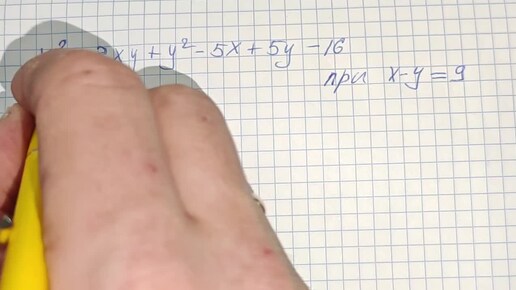 x² - 2xy + y² - 5x + 5y - 16
при x-y = 9